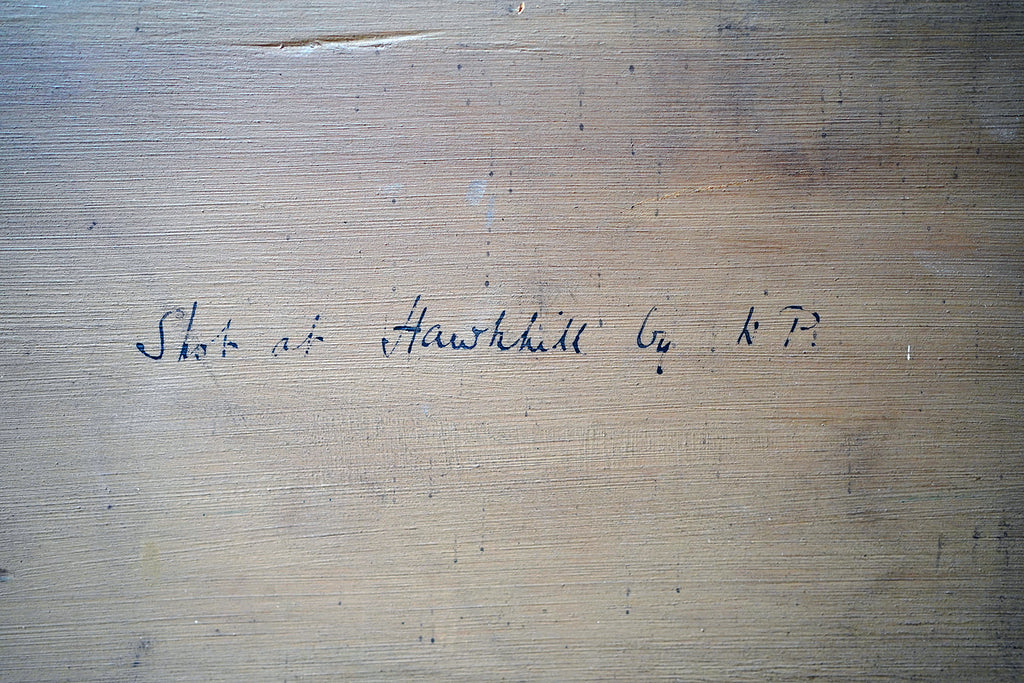 Shot at Hawkhill by k P.